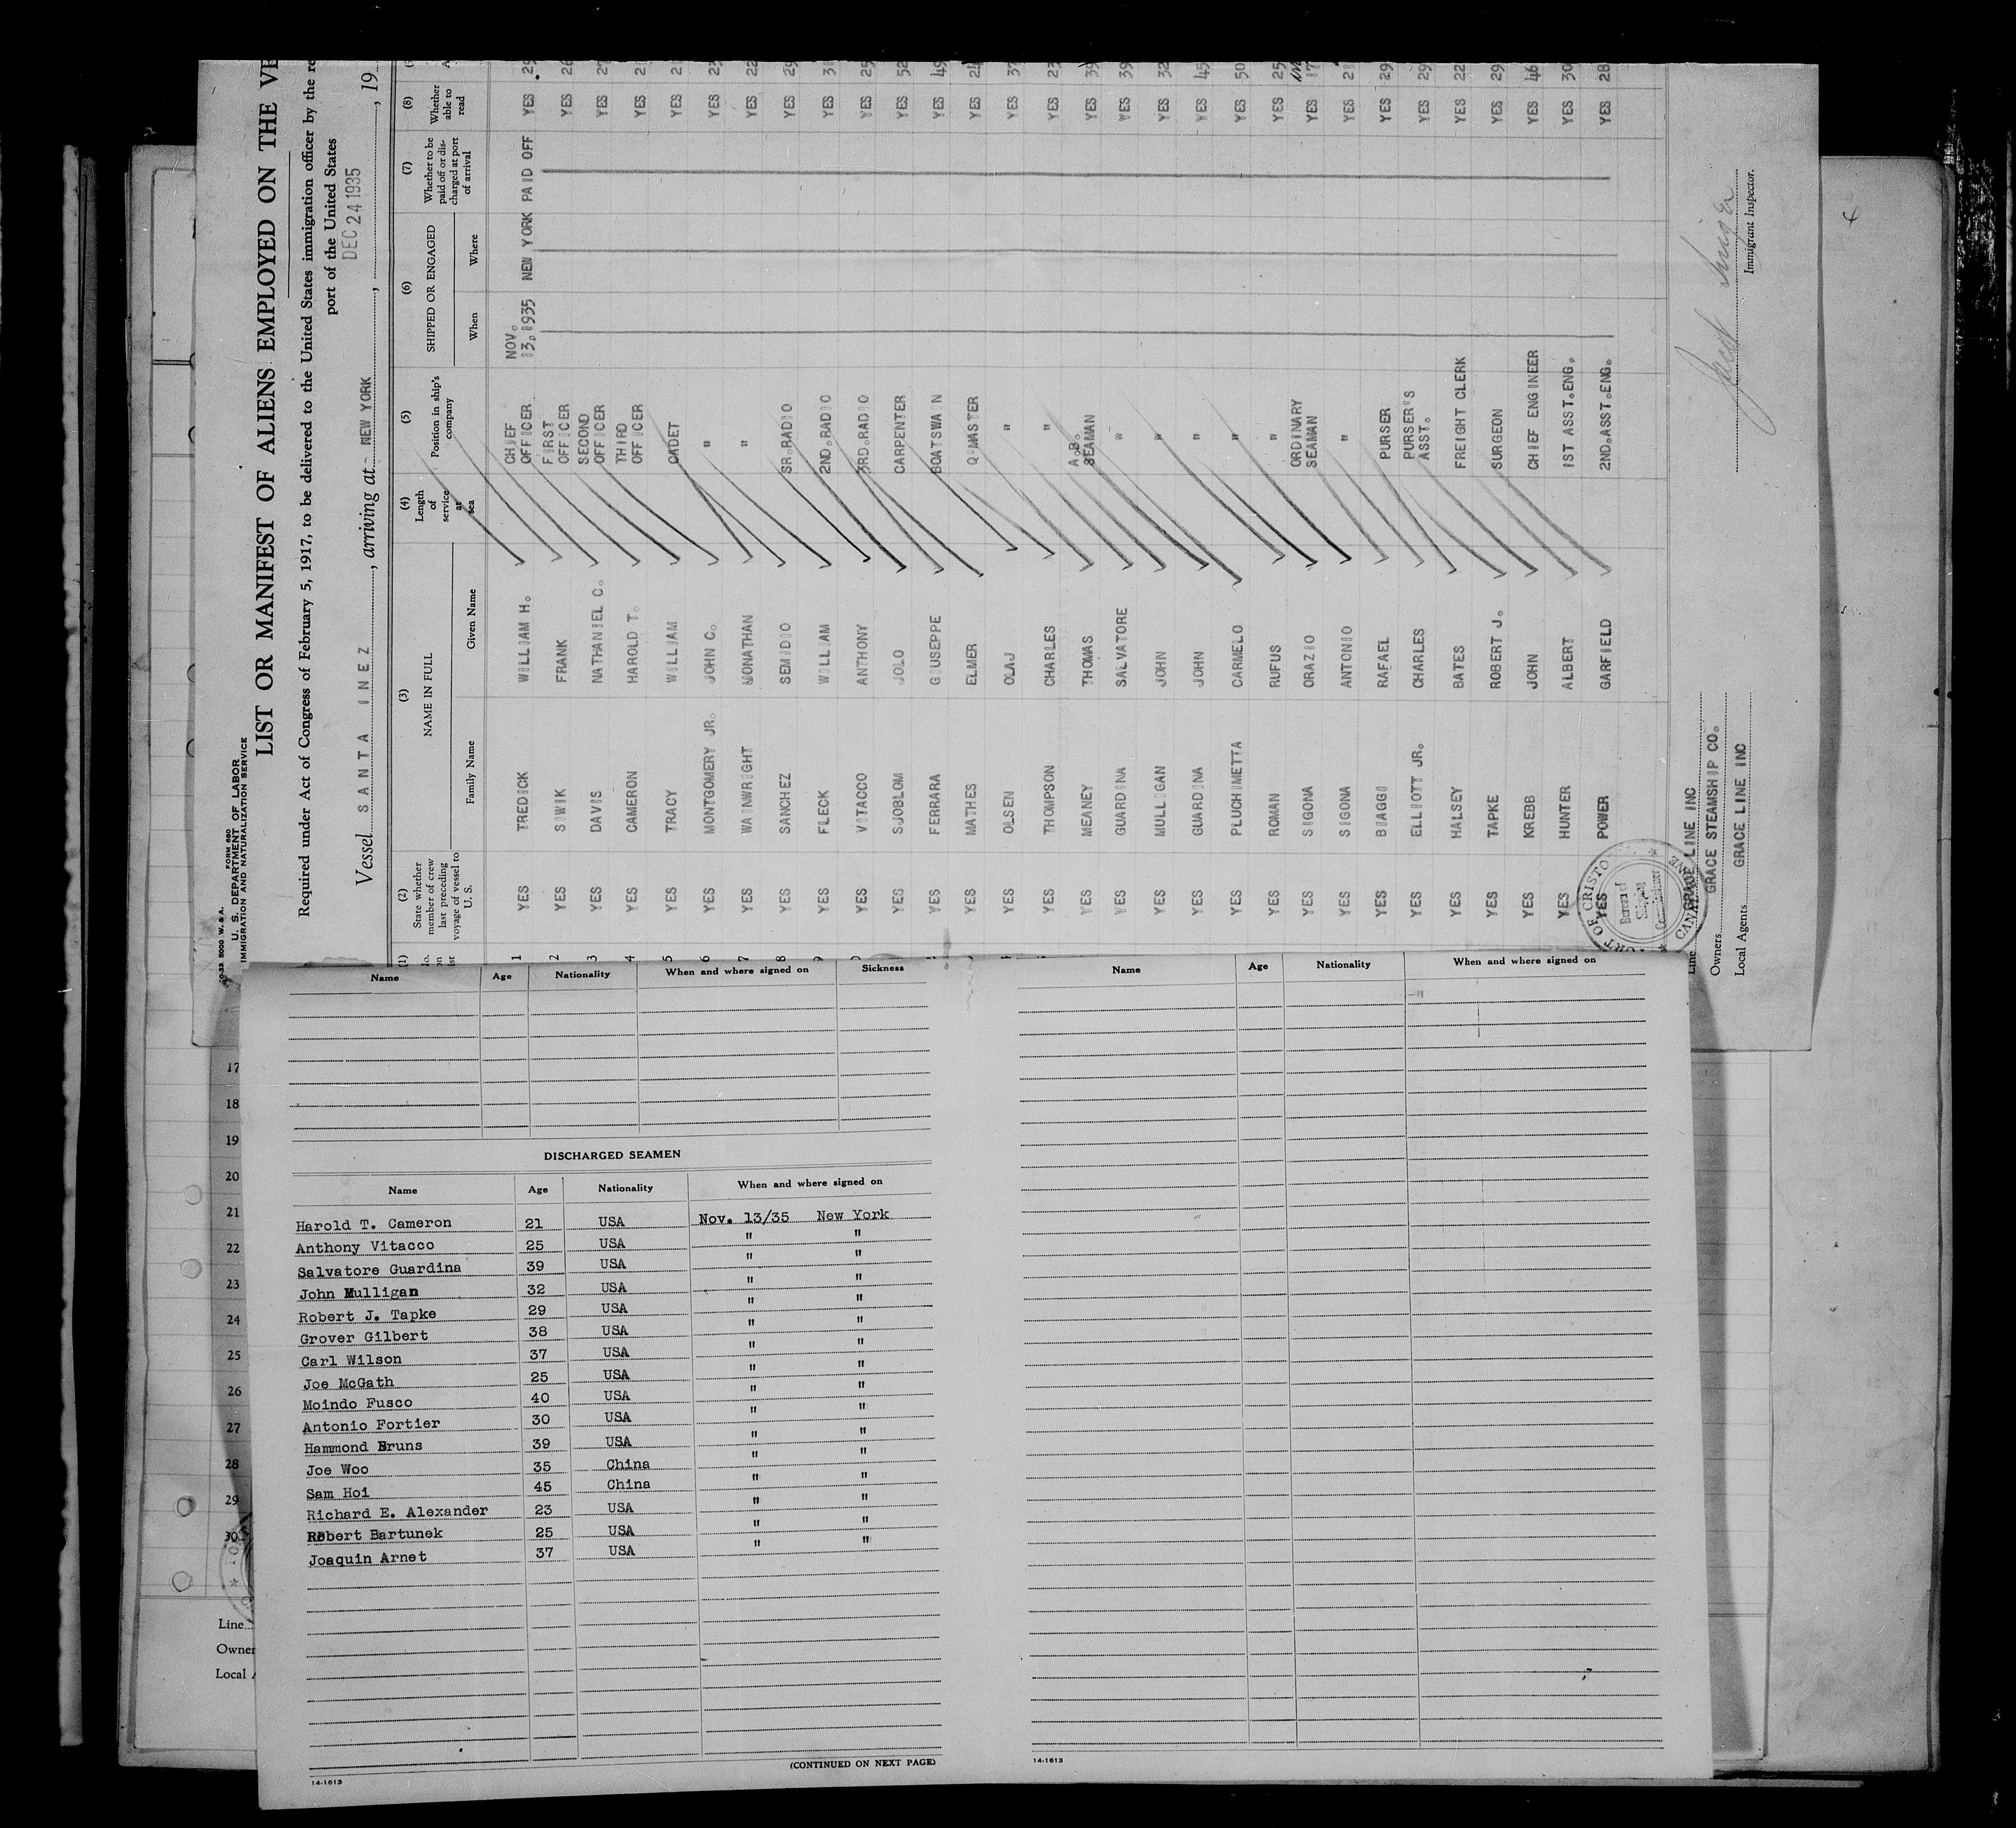 20-33 5000 W.& A. FORM 680
U. S. DEPARTMENT OF LABOR
IMMIGRATION AND NATURALIZATION SERVICE
LIST OR MANIFEST OF ALIENS EMPLOYED ON THE VE
Required under Act of Congress of February 5, 1917, to be delivered to the United States immigration officer by the re
port of the United States
Vessel SANTA INEZ, arriving at NEW YORK, DEC 24 1935, 19
(1) (2) State whether member of crew last preceding voyage of vessel to U. S. (3) NAME IN FULL Family Name Given Name (4) Length of service at sea (5) Position in ship's company (6) SHIPPED OR ENGAGED When Where (7) Whether to be paid off or discharged at port of arrival (8) Whether able to read
1 YES TREDICK WILLIAM H. CHIEF OFFICER NOV. 13, 1935 NEW YORK PAID OFF YES 29
2 YES SIWIK FRANK FIRST OFFICER YES 26
3 YES DAVIS NATHANIEL C. SECOND OFFICER YES 27
4 YES CAMERON HAROLD T. THIRD OFFICER YES 21
5 YES TRACY WILLIAM CADET YES 21
6 YES MONTGOMERY JR. JOHN C. " YES 23
7 YES WAINWRIGHT MONATHAN " YES 22
8 YES SANCHEZ SEMIDIO SR.RADIO YES 29
9 YES FLECK WILLIAM 2ND.RADIO YES 31
YES VITACCO ANTHONY 3RD.RADIO YES 25
YES SJOBLOM JOLO CARPENTER YES 52
YES FERRARA GIUSEPPE BOATSWAIN YES 49
YES MATHES ELMER Q'MASTER YES 24
YES OLSEN OLAJ " YES 37
YES THOMPSON CHARLES " YES 23
YES MEANEY THOMAS A.B. SEAMAN YES 39
YES GUARDINA SALVATORE " YES 39
YES MULLIGAN JOHN " YES 32
YES GUARDINA JOHN " YES 45
YES PLUCHIMETTA CARMELO " YES 50
YES ROMAN RUFUS " YES 25
YES SIGONA ORAZIO ORDINARY SEAMAN YES 17
YES SIGONA ANTONIO " YES 21
YES BIAGGI RAFAEL PURSER YES 29
YES ELLIOTT JR. CHARLES PURSER'S ASST. YES 29
YES HALSEY BATES FREIGHT CLERK YES 22
YES TAPKE ROBERT J. SURGEON YES 29
YES KREBB JOHN CHIEF ENGINEER YES 46
YES HUNTER ALBERT 1ST ASST.ENG. YES 30
YES POWER GARFIELD 2ND.ASST.ENG. YES 28
PORT OF CRISTO
Bureau of Shipping Commissioner
Line GRACE LINE INC
Owners GRACE STEAMSHIP CO.
Local Agents GRACE LINE INC
Immigrant Inspector.
17
18
19
20
21
22
23
24
25
26
27
28
29
30
Line
Owner
Local A
Name Age Nationality When and where signed on Sickness
DISCHARGED SEAMEN
Name Age Nationality When and where signed on
Harold T. Cameron 21 USA Nov. 13/35 New York
Anthony Vitacco 25 USA " "
Salvatore Guardina 39 USA " "
John Mulligan 32 USA " "
Robert J. Tapke 29 USA " "
Grover Gilbert 38 USA " "
Carl Wilson 37 USA " "
Joe McGath 25 USA " "
Moindo Fusco 40 USA " "
Antonio Fortier 30 USA " "
Hammond Bruns 39 USA " "
Joe Woo 35 China " "
Sam Hoi 45 China " "
Richard E. Alexander 23 USA " "
Robert Bartunek 25 USA " "
Joaquin Arnet 37 USA " "
(CONTINUED ON NEXT PAGE)
14-1613
Name Age Nationality When and where signed on
14-1613